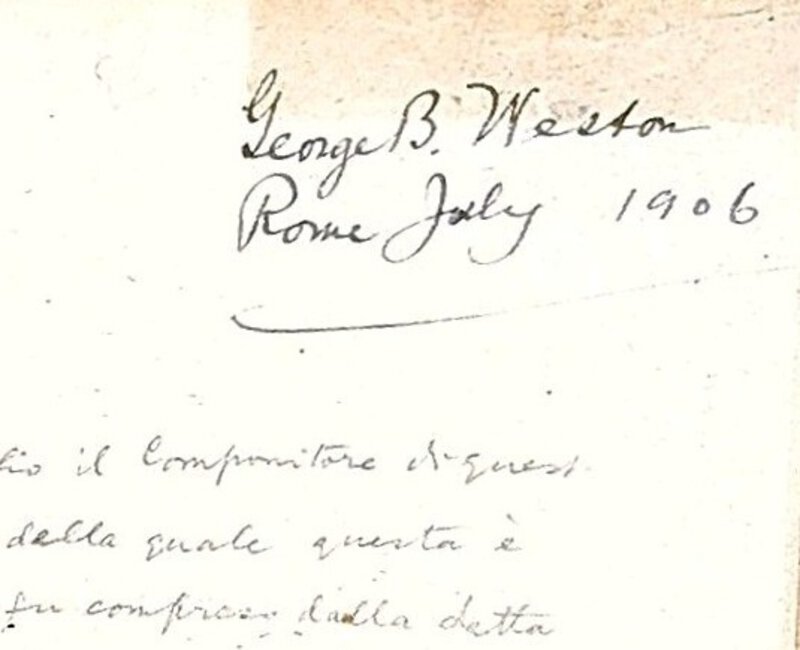 George B. Weston
Rome July 1906
il Compositore di quest
della quale questa è
fu compreso dalla detta